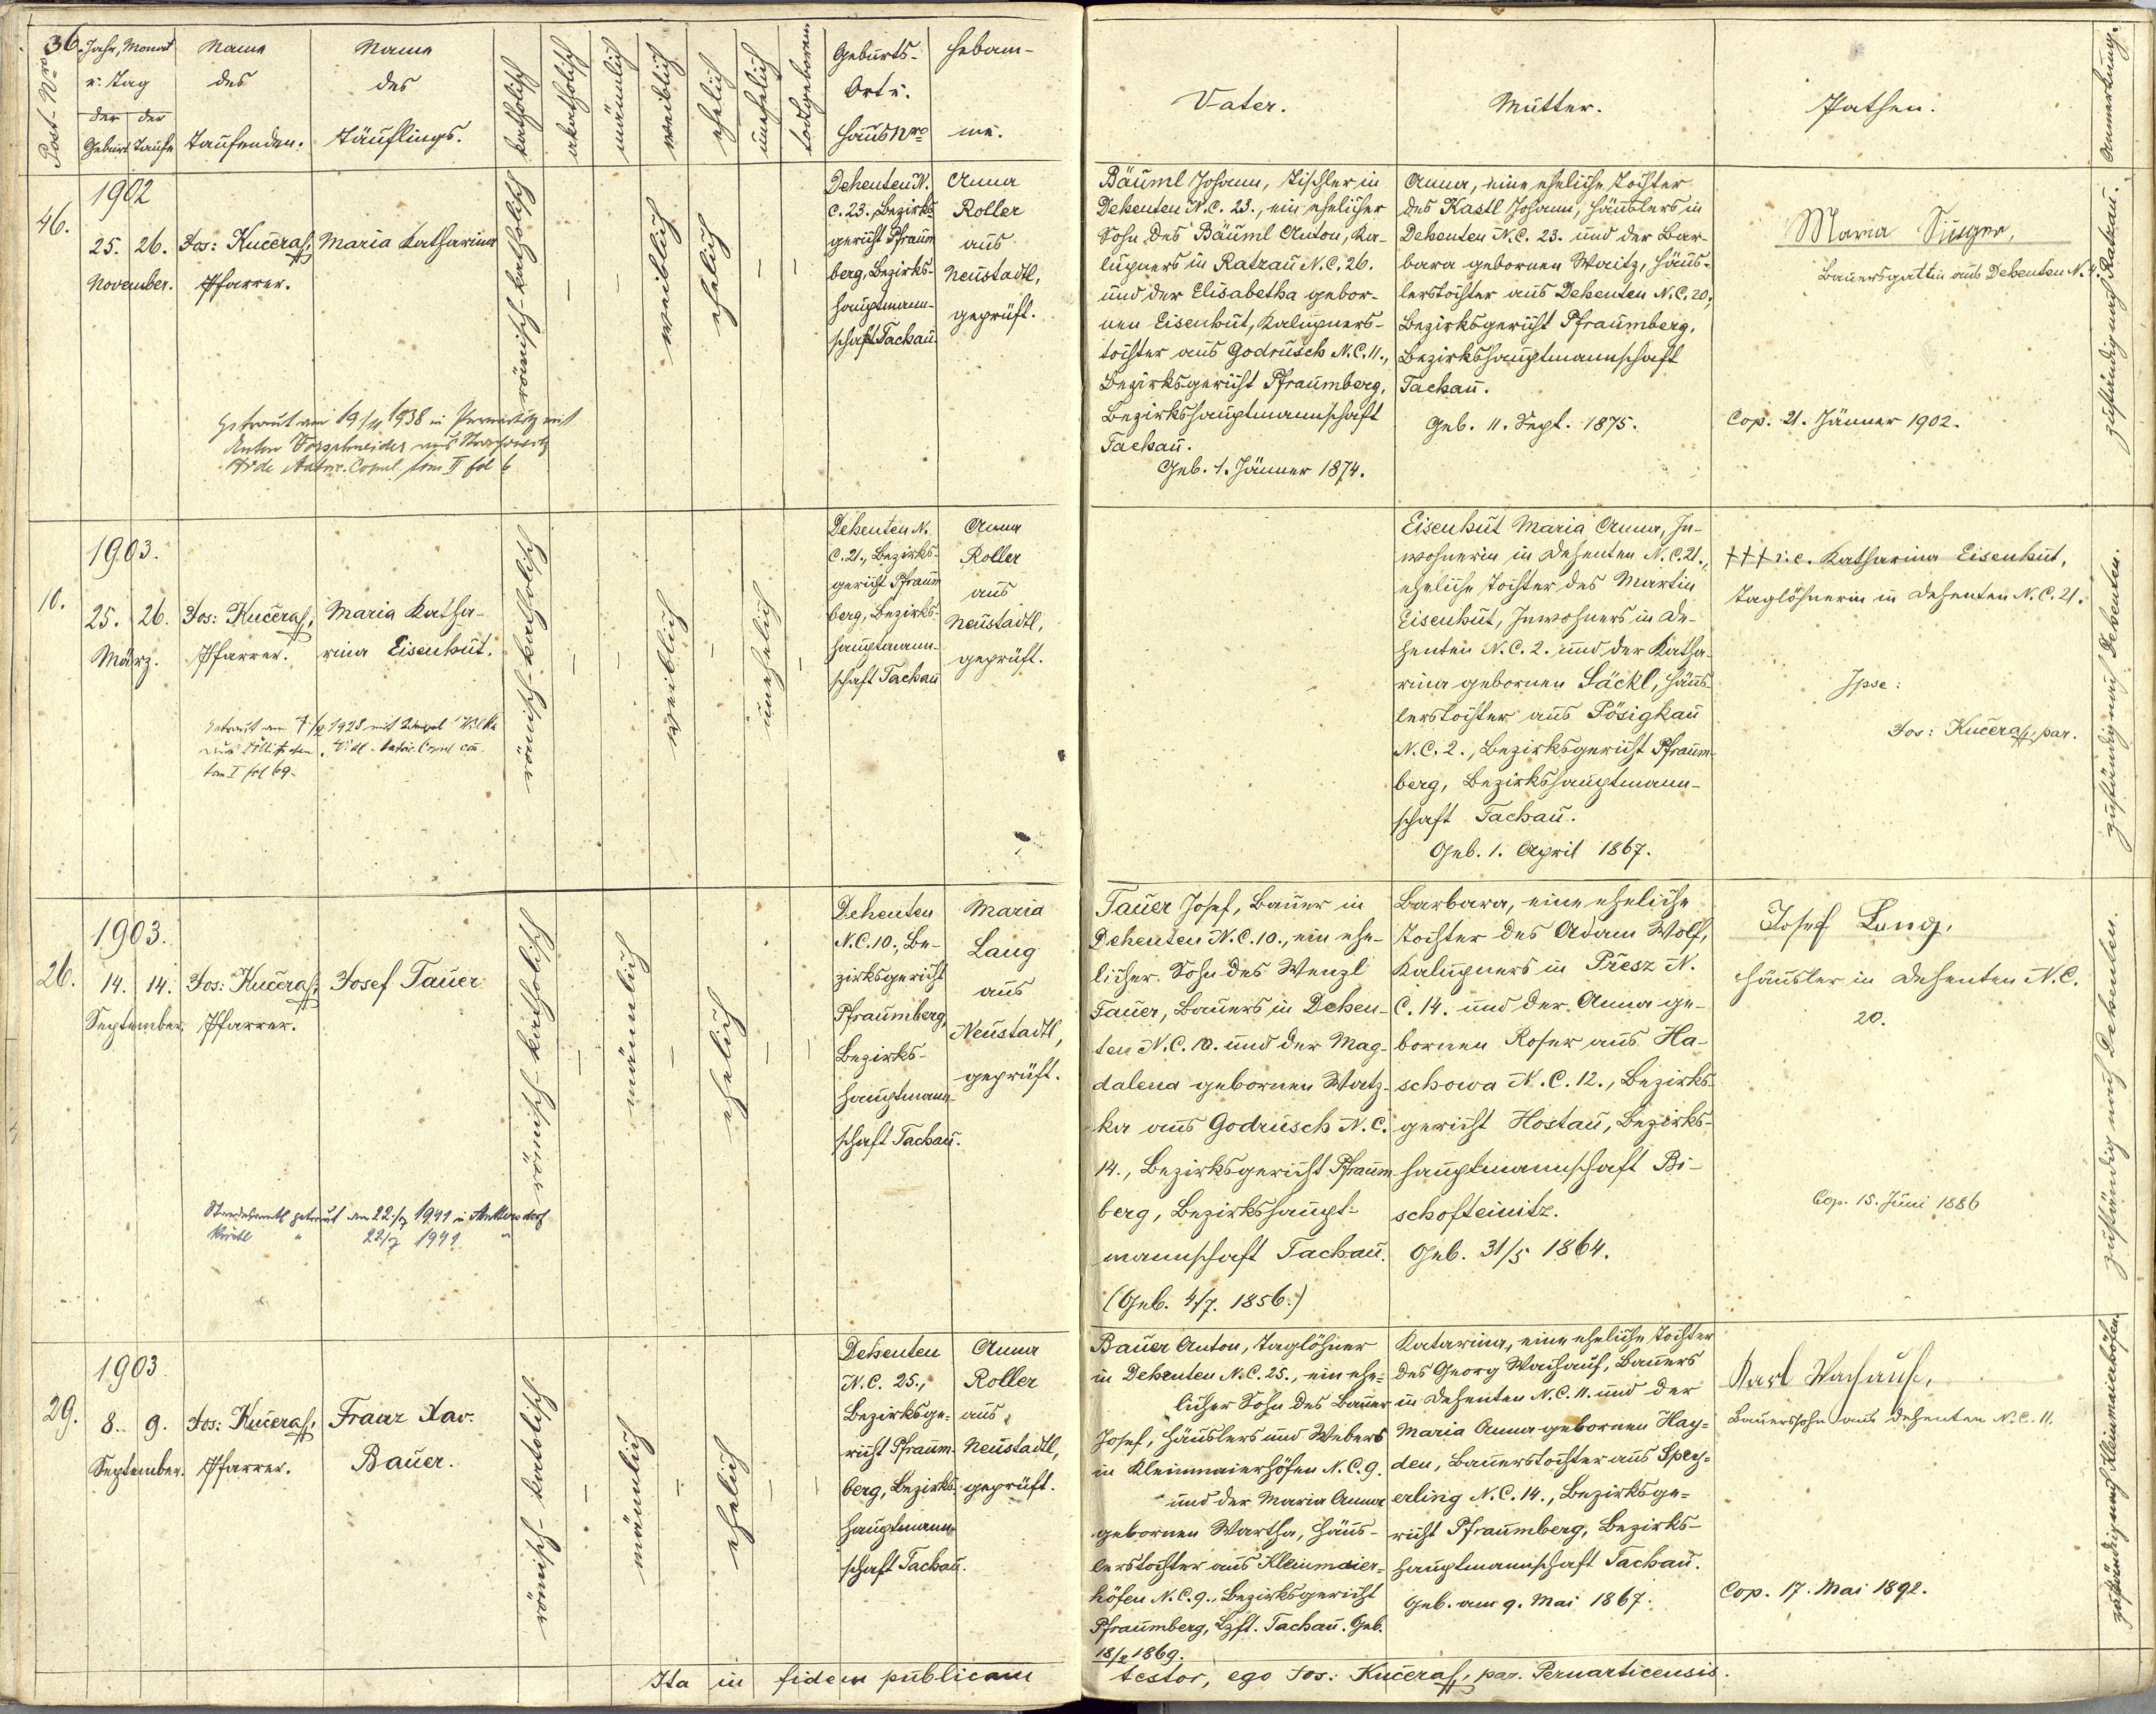 36.
Post-Nro
Jahr, Monat
u. Tag
der der
Geburt Taufe
Name
des
Taufenden.
Name
des
Täuflings.
katholisch
akatholisch
männlich
weiblich
ehelich
unehelich
todtgeboren
Geburts-
Ort u.
Haus Nro
Hebam-
me.
Vater.
Mutter.
Pathen.
Anmerkung.
46.
1902
25. 26.
November.
Jos: Kučera,
Pfarrer.
Maria Katharina
römisch-katholisch
weiblich
ehelich
Dehenten N.
C. 23., Bezirks
gericht Pfraum
berg, Bezirks-
hauptmann-
schaft Tachau
Anna
Roller
aus
Neustadtl,
geprüft.
Getraut am 19/4 1938 in mit
Anton aus
Vide Matric. Copul. tom II fol 6
Bäuml Johann, Tischler in
Dehenten N.C. 23., ein ehelicher
Sohn des Bäuml Anton, Ka-
lupners in Ratzau N.C. 26.
und der Elisabetha gebor-
nen Eisenhut, Kalupners-
tochter aus Godrusch N.C. 11.,
Bezirksgericht Pfraumberg,
Bezirkshauptmannschaft
Tachau.
Geb. 1. Jänner 1874.
Anna, eine eheliche Tochter
des Kastl Johann, Häuslers in
Dehenten N.C. 23. und der Bar-
bara gebornen Waitz, Häus-
lerstochter aus Dehenten N.C. 20,
Bezirksgericht Pfraumberg,
Bezirkshauptmannschaft
Tachau.
Geb. 11. Sept. 1875.
Maria Singer,
Bauersgattin aus Dehenten N. 4.
Cop. 21. Jänner 1902.
zuständig nach Ratzau.
10.
1903.
25. 26.
März.
Jos: Kučera,
Pfarrer.
Maria Katha-
rina Eisenhut.
römisch-katholisch
weiblich
unehelich
Dehenten N.
C. 21., Bezirks-
gericht Pfraum
berg, Bezirks-
hauptmann-
schaft Tachau
Anna
Roller
aus
Neustadtl,
geprüft.
Getraut am 1928 mit
aus
tom I fol 69.
Eisenhut Maria Anna, In-
wohnerin in Dehenten N.C. 21.,
eheliche Tochter des Martin
Eisenhut, Inwohners in De-
henten N.C. 2. und der Katha-
rina gebornen Säckl, Häus-
lerstochter aus Pösigkau
N.C. 2., Bezirksgericht Pfraum-
berg, Bezirkshauptmann-
schaft Tachau.
Geb. 1. April 1867.
+++ i.e. Katharina Eisenhut,
Taglöhnerin in Dehenten N.C. 21.
Ipse:
Jos: Kučera, par.
zuständig nach Dehenten.
26.
1903.
14. 14.
September.
Jos: Kučera,
Pfarrer.
Josef Tauer
römisch-katholisch
männlich
ehelich
Dehenten
N.C. 10., Be-
zirksgericht
Pfraumberg,
Bezirks-
hauptmann-
schaft Tachau.
Maria
Lang
aus
Neustadtl,
geprüft.
Standesamtl getraut am 22./7 1941 in
Kirchl " 22/7 1941 "
Tauer Josef, Bauer in
Dehenten N.C. 10., ein ehe-
licher Sohn des Wenzl
Tauer, Bauers in Dehen-
ten N.C. 10. und der Mag-
dalena gebornen Watz-
ka aus Godrusch N.C.
14., Bezirksgericht Pfraum
berg, Bezirkshaupt-
mannschaft Tachau.
(Geb. 4/7. 1856.)
Barbara, eine eheliche
Tochter des Adam Wolf,
Kalupners in Přesz N.
C. 14. und der Anna ge-
bornen Roser aus Ha-
schowa N.C. 12., Bezirks-
gericht Hostau, Bezirks-
hauptmannschaft Bi-
schofteinitz.
Geb. 31/5 1864.
Josef Lang,
Häusler in Dehenten N.C.
20.
Cop. 15. Juni 1886
zuständig nach Dehenten.
29.
1903
8. 9.
September.
Jos: Kučera,
Pfarrer.
Franz Xav.
Bauer.
römisch-katolisch
männlich
ehelich
Dehenten
N.C. 25.,
Bezirksge-
richt Pfraum-
berg, Bezirks-
hauptmann-
schaft Tachau.
Anna
Roller
aus
Neustadtl,
geprüft.
Bauer Anton, Taglöhner
in Dehenten N.C. 25., ein ehe-
licher Sohn des Bauer
Josef, Häuslers und Webers
in Kleinmaierhöfen N.C. 9.
und der Maria Anna
gebornen Wartha, Häus-
lerstochter aus Kleinmaier-
höfen N.C. 9., Bezirksgericht
Pfraumberg, Bzft. Tachau. Geb.
18/2 1869.
Katarina, eine eheliche Tochter
des Georg Wachauf, Bauers
in Dehenten N.C. 11. und der
Maria Anna gebornen Hay-
den, Bauerstochter aus Spey-
erling N.C. 14., Bezirksge-
richt Pfraumberg, Bezirks-
hauptmannschaft Tachau.
Geb. am 9. Mai 1867.
Karl Wachauf,
Bauerssohn aus Dehenten N.C. 11.
Cop. 17. Mai 1892.
zuständig nach Kleinmaierhöfen
Ita in fidem publicam
testor, ego Jos: Kučera, par. Pernarticensis.